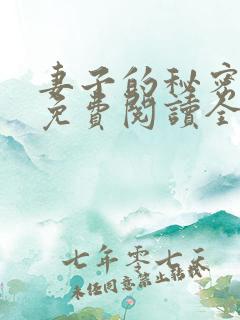 妻子的秘密
免費閱讀全
七年零七天
未经同意禁止转载